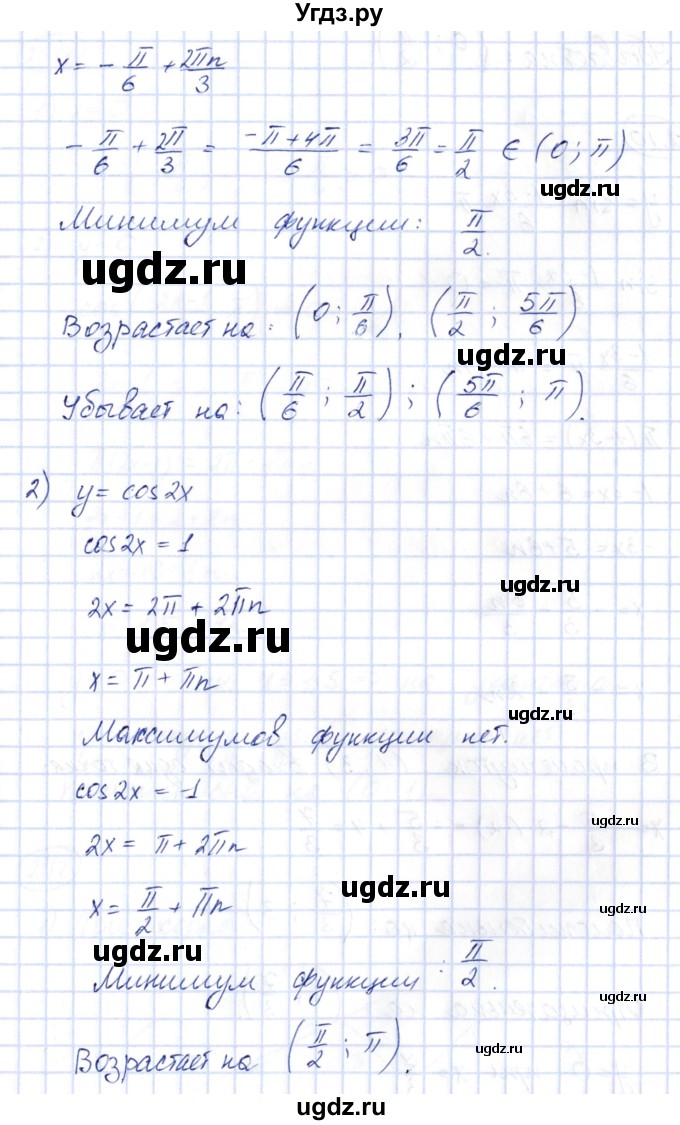 Угдз.ру
x = - π/6 + 2πn/3
- π/6 + 2π/3 = (-π+4π)/6 = 3π/6 = π/2 ∈ (0; π)
ugdz.ru
Минимум функции: π/2.
ugdz.ru
Возрастает на: (0; π/6), (π/2; 5π/6)
ugdz.ru
Убывает на: (π/6; π/2); (5π/6; π).
2) y = cos2x
cos2x = 1
ugdz.ru
2x = 2π + 2πn
ugdz.ru
x = π + πn
ugdz.ru
Максимумов функции нет.
cos2x = -1
ugdz.ru
2x = π + 2πn
ugdz.ru
x = π/2 + πn
ugdz.ru
ugdz.ru
Минимум функции: π/2.
ugdz.ru
Возрастает на (π/2; π).
ugdz.ru
ugdz.ru